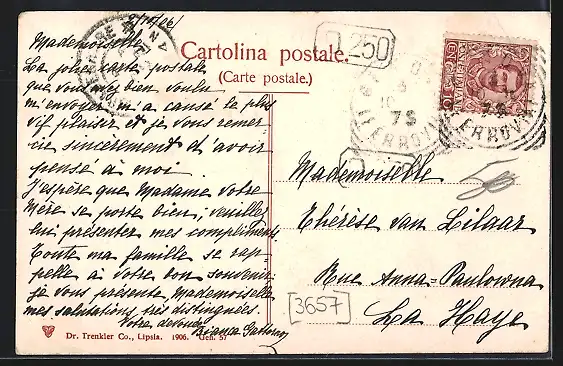 9/10/06
Mademoiselle
La jolie carte postale
que vous avez bien voulu
m'envoyer m'a causé le plus
vif plaisir et je vous remer-
cie sincèrement d'avoir
pensé à moi.
J'espère que Madame votre
Mère se porte bien; veuillez
lui présenter mes compliments.
Toute ma famille se rap-
pelle à votre bon souvenir;
je vous présente, Mademoiselle
mes salutations très distinguées.
Votre dévouée
Bianca
Cartolina postale.
(Carte postale.)
250
7S
FERROVIA
Mademoiselle
Thérèse van Lilaar
Rue Anna-Paulowna
La Haye
3657
Dr. Trenkler Co., Lipsia. 1906. Gen. 57